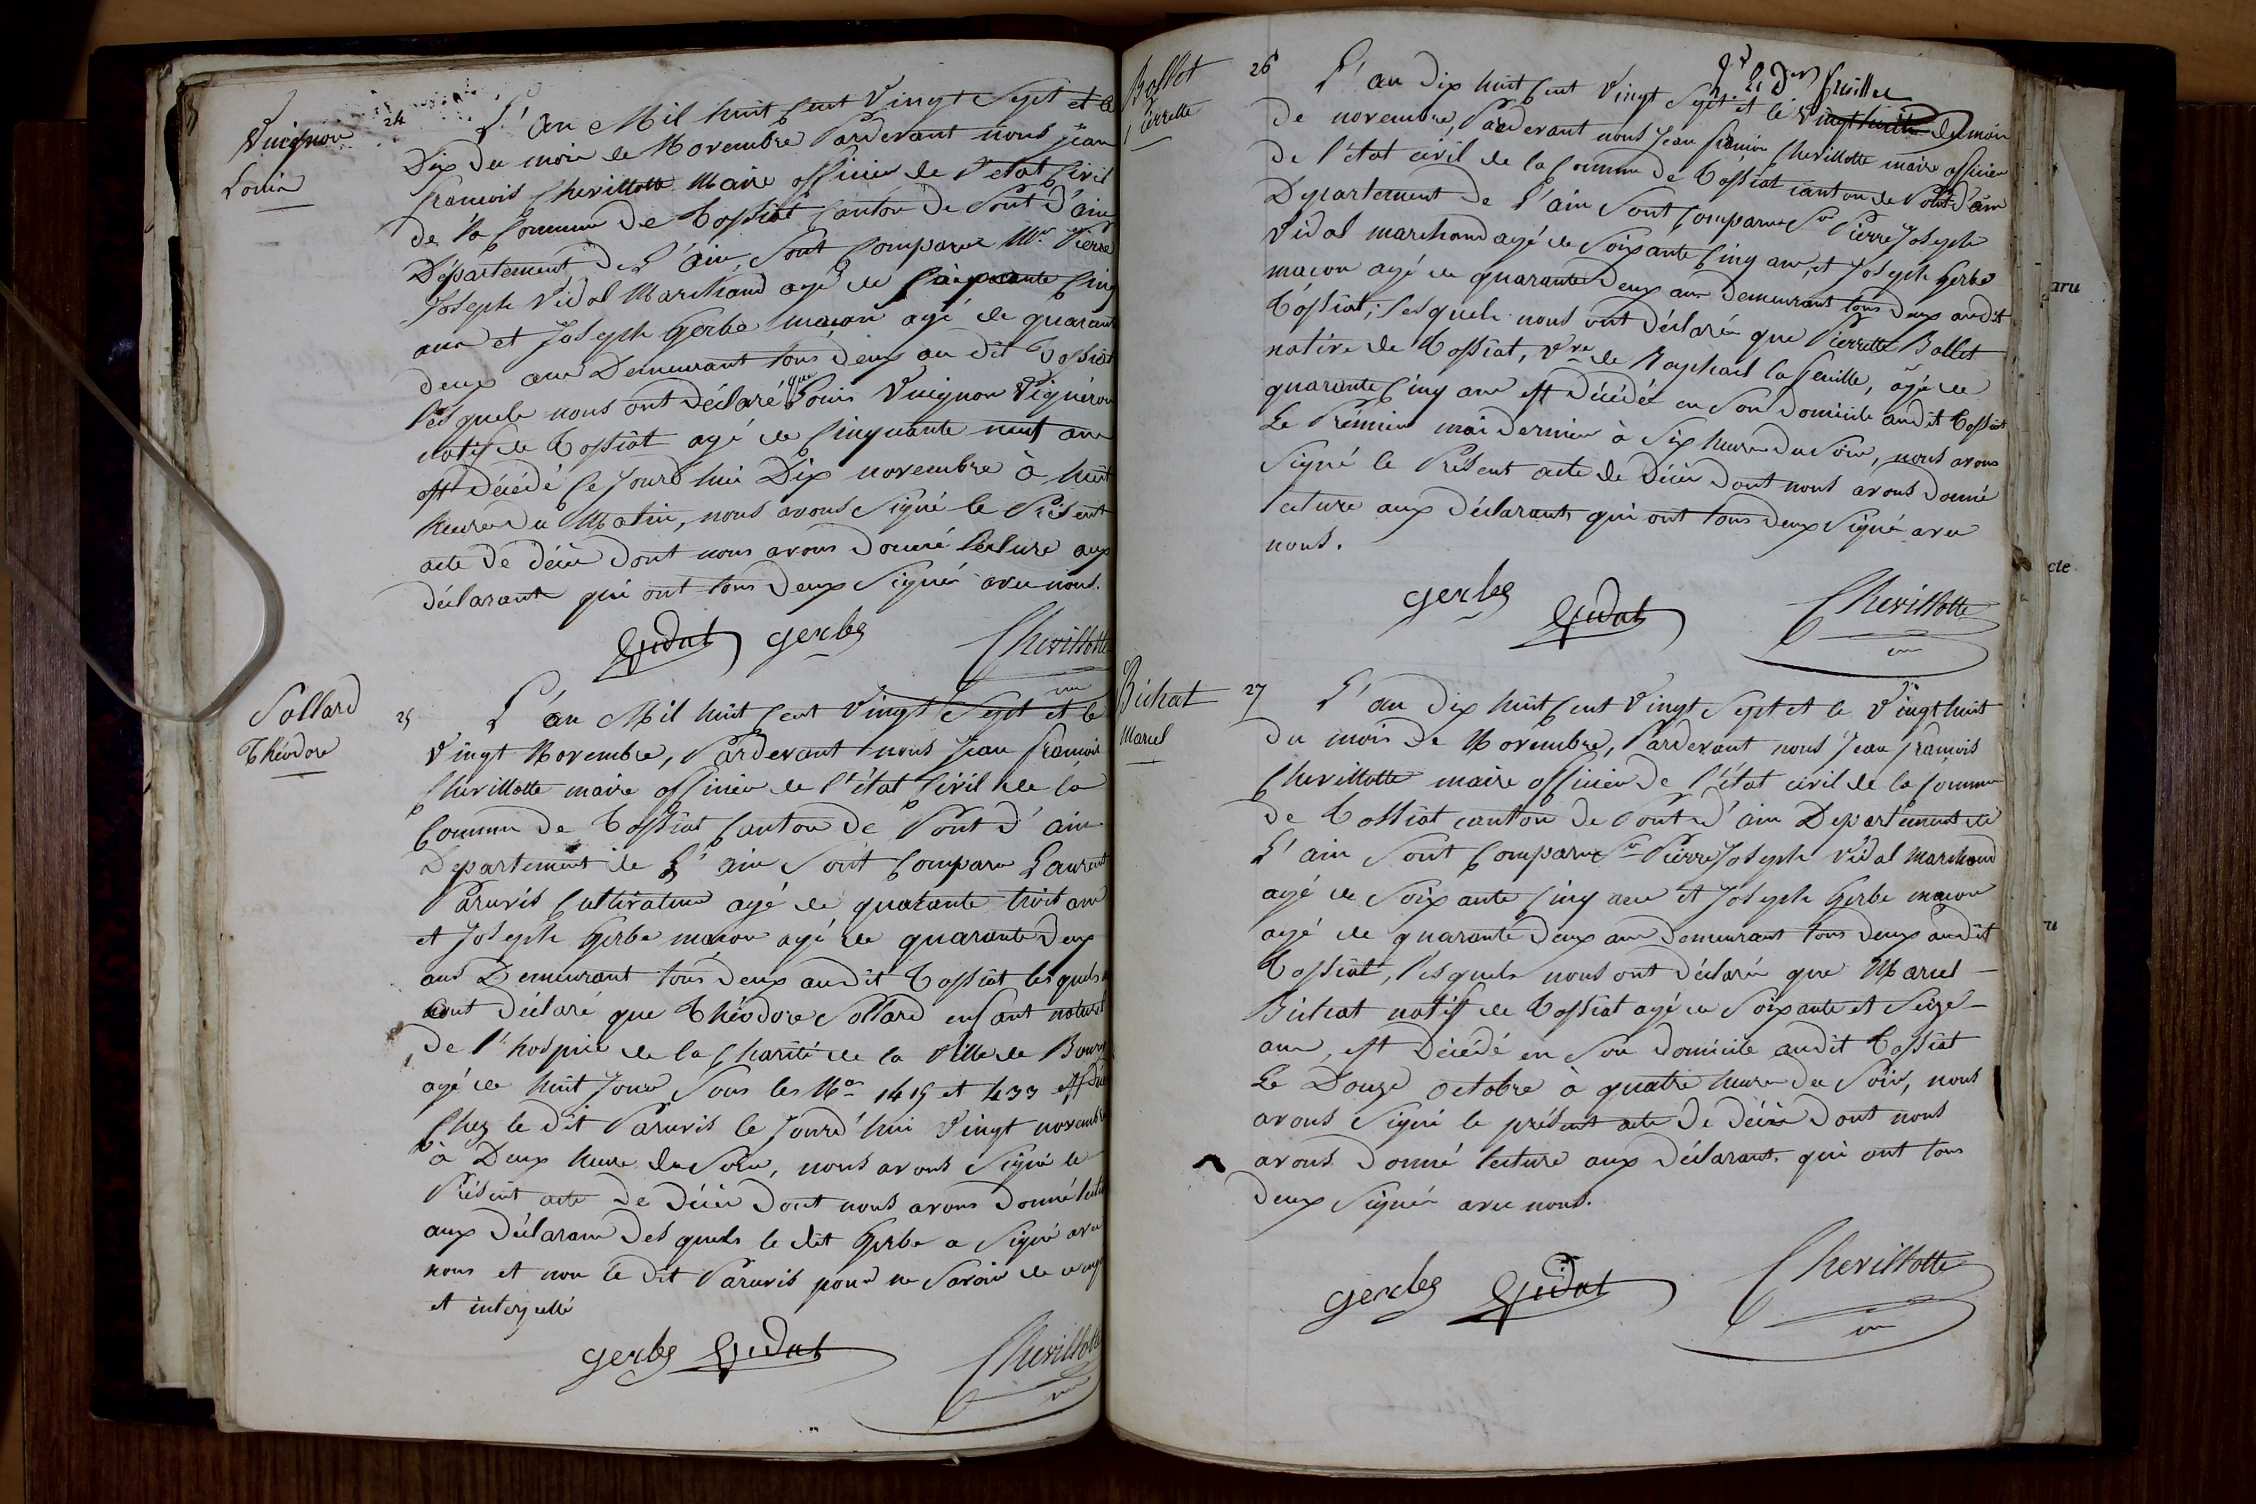 Vucignon
Louis
24
L'an Mil huit Cent Vingt Sept et le
Dix du mois de Novembre Pardevant nous jean
francois Chevillotte Maire officier de l'etat Civil
de la Commune de Tossiat Canton de Pont d'ain
Département de L'ain Sont Comparus Mr. Pierre
Joseph Vidal Marchand agé de Cinq
ans et Joseph Gerbe maçon agé de quarante
deux ans Demeurant tous deux au dit Tossiat
lesquels nous ont déclaré que Louis Vucignon Vigneron
natif de Tossiat agé de Cinquante neuf ans
est décédé Ce Jourd'hui Dix novembre à huit
heures du Matin, nous avons Signé le Présent
acte de décès dont nous avons donné lecture aux
déclarants qui ont tous deux Signés avec nous.
Vidal gerbe Chevillotte
Sollard
Théodore
25
L'an Mil huit Cent Vingt Sept et le
Vingt Novembre, Pardevant nous Jean francois
Chevillotte maire officier de l'état Civil de la
Commune de Tossiat Canton de Pont d'ain
Departement de L'ain Sont Comparus Laurent
Paruvis Cultivateur agé de quarante trois ans
et Joseph Gerbe maçon agé de quarante deux
ans Demeurant tous deux audit Tossiat lesquels
ont déclaré que Théodore Sollard enfant naturel
de l'hospice de la Charité de la Ville de Bourg
agé de huit Jours Sous les No. 1415 et 433 est
Chez le dit Paruvis le Jourd'hui Vingt novembre
à Deux heures du Soir, nous avons Signé le
Présent acte de décès dont nous avons donné
aux déclarans desquels le dit Gerbe a Signé avec
nous et non le dit Paruvis pour ne Savoir de ce
et interpellé
gerbe Vidal Chevillotte
Bollet
Pierrette
26
L'an dix huit Cent Vingt Sept et le vingt huit du mois
de novembre, Pardevant nous Jean francois Chevillotte maire officier
de l'état civil de la Commune de Tossiat canton de Pont d'ain
Departement de L'ain Sont Comparus Sr Pierre Joseph
Vidal marchand agé de Soixante Cinq ans, et Joseph Gerbe
macon agé de quarante Deux ans demeurant tous deux audit
Tossiat; lesquels nous ont déclarés que Pierrette Bollet
native de Tossiat, Vve de Raphael la feuille, agée de
quarante Cinq ans est décédée en Son domicile audit Tossiat
Le Premier mai dernier à Six heures du Soir, nous avons
Signé le Présent acte de Décès dont nous avons donné
lecture aux déclarants qui ont tous deux Signés avec
nous.
gerbe Vidal Chevillotte
Bichat
Marcel
27
L'an dix huit Cent Vingt Sept et le Vingt huit
du mois de Novembre, Pardevant nous Jean francois
Chevillotte maire officier de l'état civil de la Commune
de Tossiat canton de Pont d'ain Departement de
L'ain Sont Comparus Sr Pierre Joseph Vidal Marchand
agé de Soixante Cinq ans et Joseph Gerbe macon
agé de quarante deux ans demeurant tous deux audit
Tossiat, lesquels nous ont déclarés que Marcel
Bichat natif de Tossiat agé de Soixante et Seize
ans, est Décédé en Son domicile audit Tossiat
Le Douze octobre à quatre heures du Soir, nous
avons Signé le présent acte de décès dont nous
avons donné lecture aux déclarants qui ont tous
deux Signés avec nous.
gerbe Vidal Chevillotte